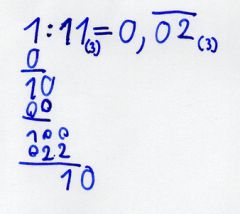 1:11(3)=0,02(3)
0
10
00
100
022
10